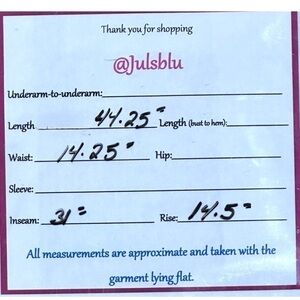 Thank you for shopping
@Julsblu
Underarm-to-underarm:
Length 44.25" Length (bust to hem):
Waist: 14.25" Hip:
Sleeve:
Inseam: 31" Rise: 14.5"
All measurements are approximate and taken with the
garment lying flat.